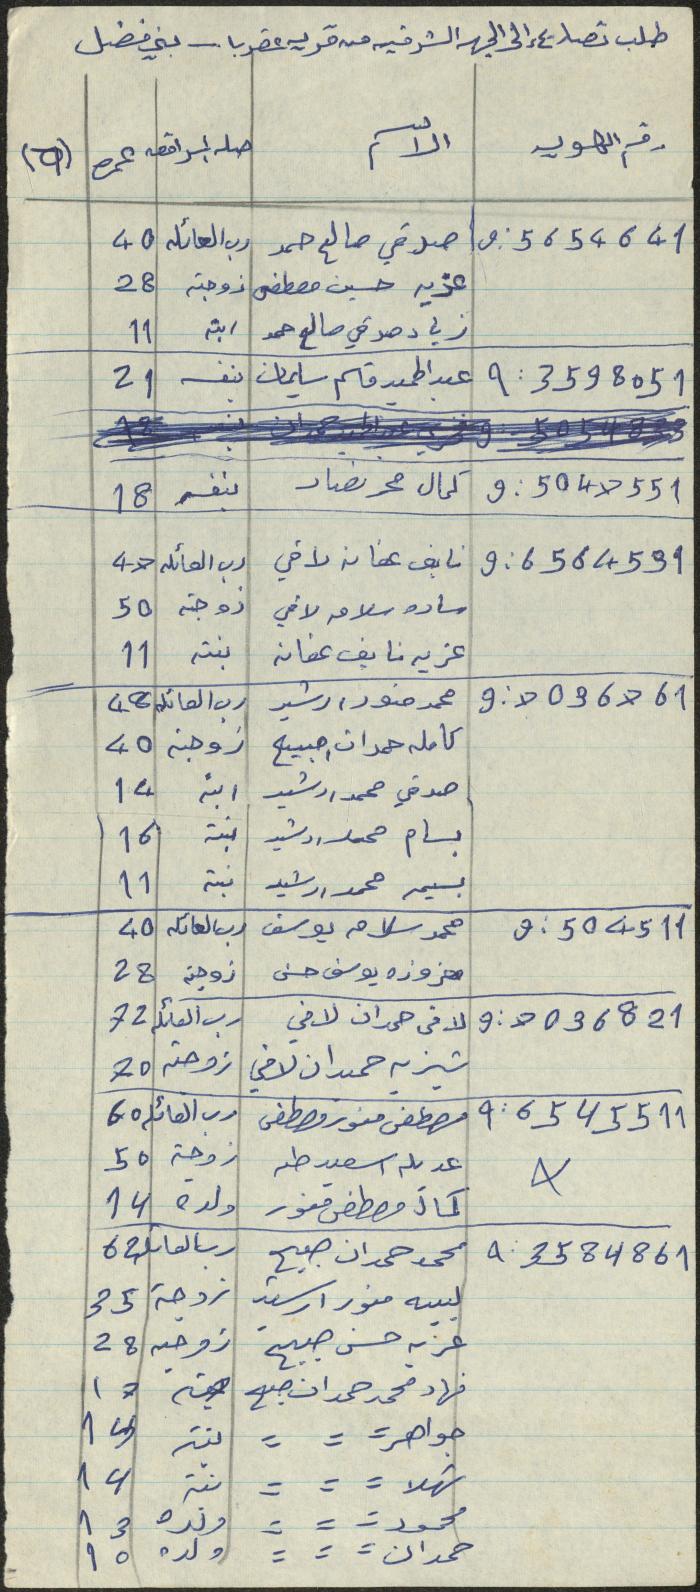 طلب تصاريح الى الجهه الشرقيه من قرية عقربا - بني فضل
رقم الهويه الاسم صلة المرافقه عمره (5)
9:5654641 صدقي صالح حمد رب العائله 40
عزيه حسين مصطفى زوجته 28
زياد صدقي صالح حمد ابنه 11
9:3598051 عبد الحميد قاسم سليمان بنفسه 21
9:5047551 كمال نصار بنفسه 18
9:6564591 نايف عفانه لافي رب العائله 47
ساره سلامه لافي زوجته 50
عزيه نايف عفانه بنته 11
9:7096761 محمد منور ارشيد رب العائله 48
كامله حمدان اجبيح زوجته 40
صدقي محمد ارشيد ابنه 14
بسام محمد ارشيد بنته 16
بسيمه محمد ارشيد بنته 11
9:504511 محمد سلامه يوسف رب العائله 40
يوسف حسن زوجته 28
9:7036821 لافي حمدان لافي رب العائله 72
حمدان لافي زوجته 70
9:6545511 مصطفى منور مصطفى رب العائله 60
عدله اسعيد طه زوجة 50
كمال مصطفى منور ولده 14
9:3584861 محمد حمدان جبيح رب العائله 62
لبيبه منور ارشيد زوجة 35
عزيه حسن جبيح زوجيه 28
فهاد محمد حمدان جبيح 17
جواهر = = = بنته 14
شهلا = = = بنته 14
محمود = = = ولده 13
حمدان = = = ولده 10